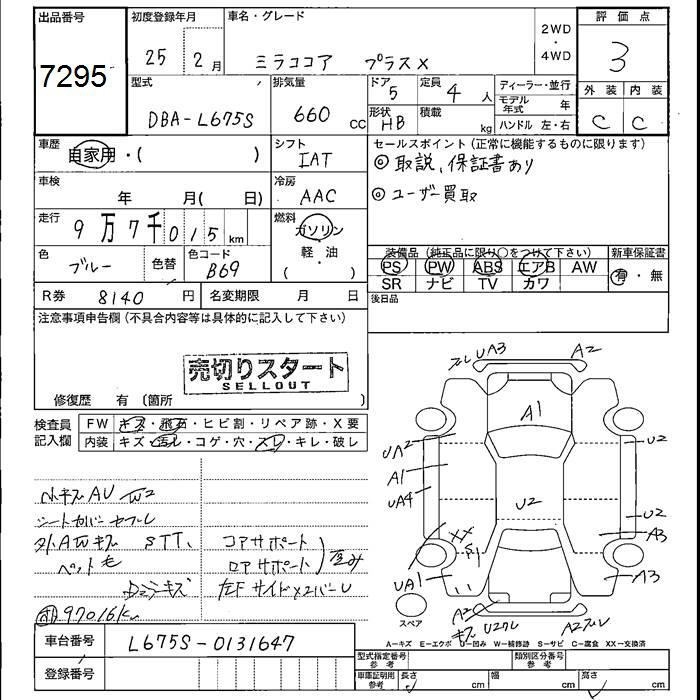 出品番号 初度登録年月 車名・グレード 2WD・4WD 評価点
7295 25年 2月 ミラココア プラスX 3
型式 排気量 ドア 5 定員 4人 ディーラー・並行 外装 内装
DBA-L675S 660cc 形状 HB 積載 kg モデル年式 年 C C
ハンドル 左・右
車歴 自家用・( ) シフト IAT セールスポイント(正常に機能するものに限ります)
◎取説、保証書あり
車検 年 月( 日) 冷房 AAC ◎ユーザー買取
走行 9万7千015km 燃料 ガソリン 軽・油 ( )
色 ブルー 色替 色コード B69 装備品(純正品に限り○をつけて下さい) 新車保証書
PS PW ABS エアB AW 有・無
SR ナビ TV カワ
R券 8140円 名変期限 月 日 後日品
注意事項申告欄(不具合内容等は具体的に記入して下さい)
売切りスタート
SELLOUT
修復歴 有(箇所 )
検査員記入欄 FW キズ・飛石・ヒビ割・リペア跡・X要
内装 キズ・汚レ・コゲ・穴・スレ・キレ・破レ
シートカバー
ペット毛
コアサポート
ロアサポート
97016km
車台番号 L675S-0131647
登録番号
UA3 A2
A1
UA2 U2
A1
UA4
U2 U2
XX A3
UA1 A3
スペア A2
キズ
A-キズ E-エクボ U-凹み W-補修跡 S-サビ C-腐食 XX-交換済
型式指定番号 参考 類別区分番号 参考
車庫証明用 参考 長さ cm 幅 cm 高さ cm